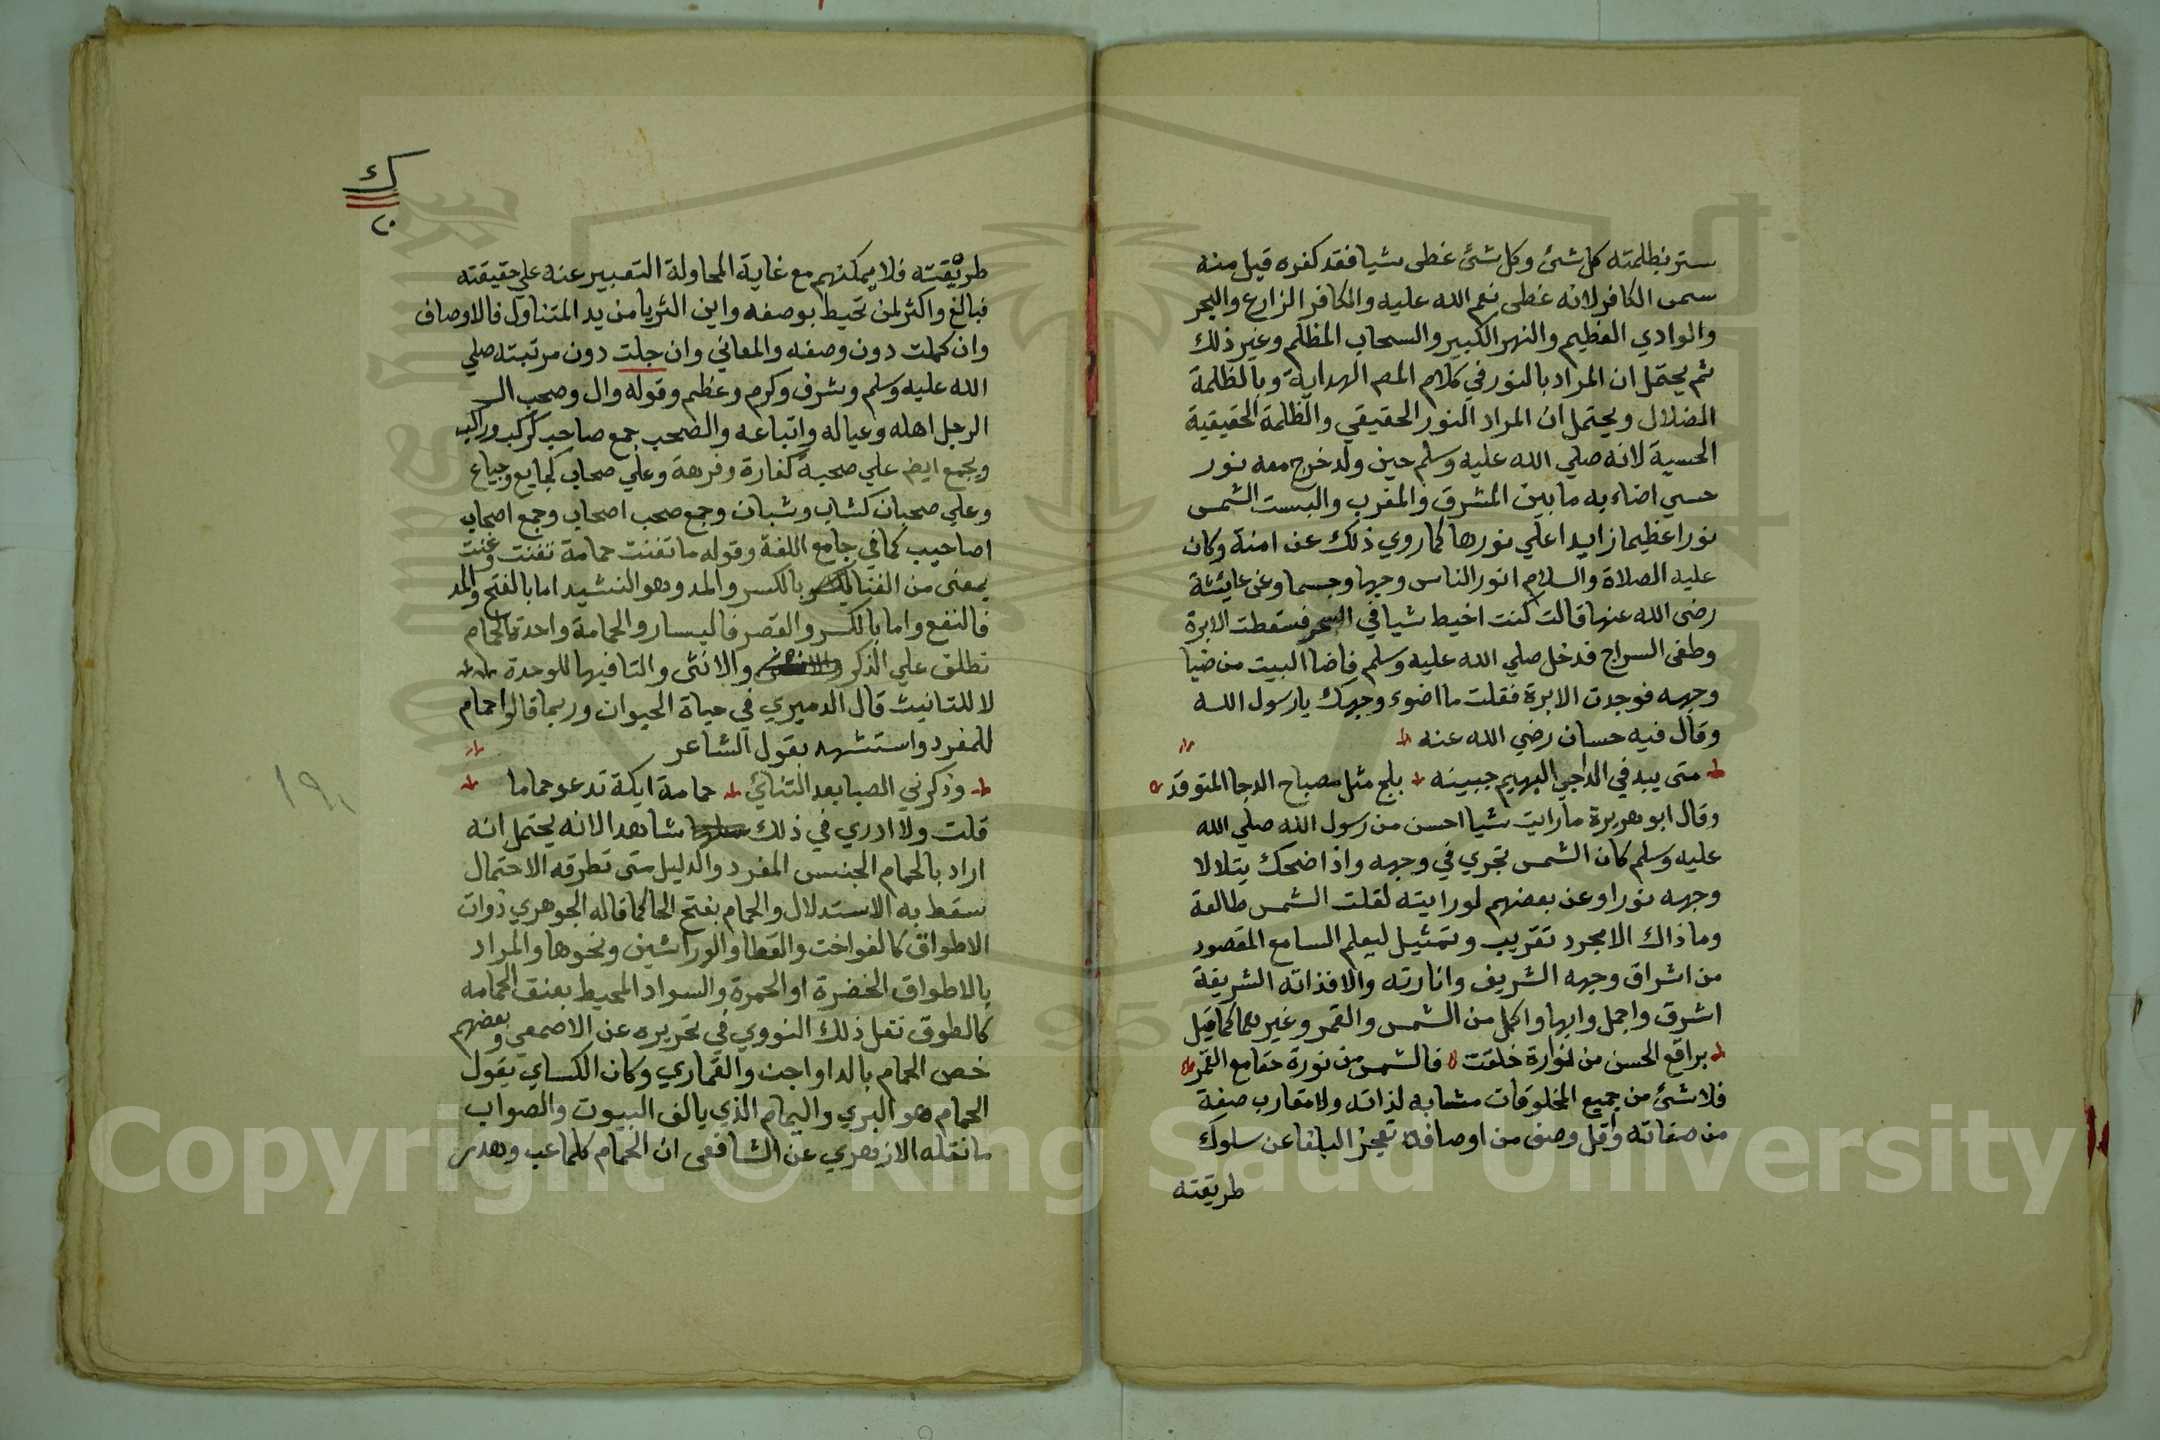 ستر بظلمته كل شئ وكل شئ غطى شيا فقد كفره قيل منه
سمى الكافر لانه غطى نعم الله عليه والكافر الزارع والبحر
والوادي العظيم والنهر الكبير والسحاب المظلم وغير ذلك
ثم يحتمل ان المراد بالنور في كلام المص الهداية وبالظلمة
الضلال ويحتمل ان المراد النور الحقيقي والظلمة الحقيقية
الحسية لانه صلي الله عليه وسلم حين ولد خرج معه نور
حسي اضاء به ما بين المشرق والمغرب والبست الشمس
نورا عظيما زايدا علي نورها كما روي ذلك عن امنة وكان
عليه الصلاة والسلام انور الناس وجها وجسما وعن عايشة
رضى الله عنها قالت كنت اخيط شيا في السحر فسقطت الابرة
وطفى السراج فدخل صلي الله عليه وسلم فاضا البيت من ضيا
وجهه فوجدت الابرة فقلت ما اضوء وجهك يا رسول الله
وقال فيه حسان رضي الله عنه
متى يبد في الداجي البهيم جبينه بلج مثل مصباح الدجا المتوقد
وقال ابو هريرة مارايت شيا احسن من رسول الله صلي الله
عليه وسلم كان الشمس تجري في وجهه واذا ضحك يتلالا
وجهه نورا وعن بعضهم لو رايته لقلت الشمس طالعة
وما ذاك الا مجرد تقريب وتمثيل ليعلم السامع المقصود
من اشراق وجهه الشريف وانارته والا فذاته الشريفة
اشرق واجمل وابها واكمل من الشمس والقمر وغيرهما كما قيل
براقع الحسن من انواره خلقت فالشمس من نوره حقا مع القمر
فلا شئ من جميع المخلوقات مشابه لذاته ولا مقارب صفة
من صفاته واقل وصف من اوصافه تعجز البلغا عن سلوك
طريقته
ك
٢٠
طريقته فلا يمكنهم مع غاية المحاولة التعبير عنه علي حقيقته
فبالغ واكثر لن تحيط بوصفه واين الثريا من يد المتناول فالاوصاف
وان كملت دون وصفه والمعاني وان جلت دون مرتبته صلي
الله عليه وسلم وشرف وكرم وعظم وقوله وال وصحب ال
الرجل اهله وعياله واتباعه والصحب جمع صاحب كركب وراكب
ويجمع ايض علي صحبة كفارة وفرهة وعلي صحاب كجايع وجياع
وعلي صحبان كشاب وشبان وجمع صحب اصحاب وجمع اصحاب
اصاحيب كما في جامع اللغة وقوله ما تغنت حمامة تغنت وغنت
بمعنى من الغنا بالكسر والمد وهو النشيد اما بالفتح والمد
فالنفع واما بالكسر والقصر فاليسار والحمامة واحدة الحمام
تطلق علي الذكر والانثى والتا فيها للوحدة
لا للتانيث قال الدميري في حياة الحيوان وربما قالوا حمام
للمفرد واستشهد بقول الشاعر
وذكرني الصبا بعد التنائي حمامة ايكة تدعو حماما
قلت ولا ادري في ذلك شاهدا لانه يحتمل انه
اراد بالحمام الجنس المفرد والدليل متى تطرقه الاحتمال
سقط به الاستدلال والحمام بفتح الحا كما قاله الجوهري ذوات
الاطواق كالفواخت والقطا والوراشين ونحوها والمراد
بالاطواق الخضرة او الحمرة والسواد المحيط بعنق الحمامه
كالطوق نقل ذلك النووي في تحريره عن الاصمعي وبعضهم
خص الحمام بالدواجن والقماري وكان الكساي يقول
الحمام هو البري واليمام الذي يالف البيوت والصواب
ما نقله الازهري عن الشافعى ان الحمام كلما عب وهدر
١٩
Copyright © King Saud University